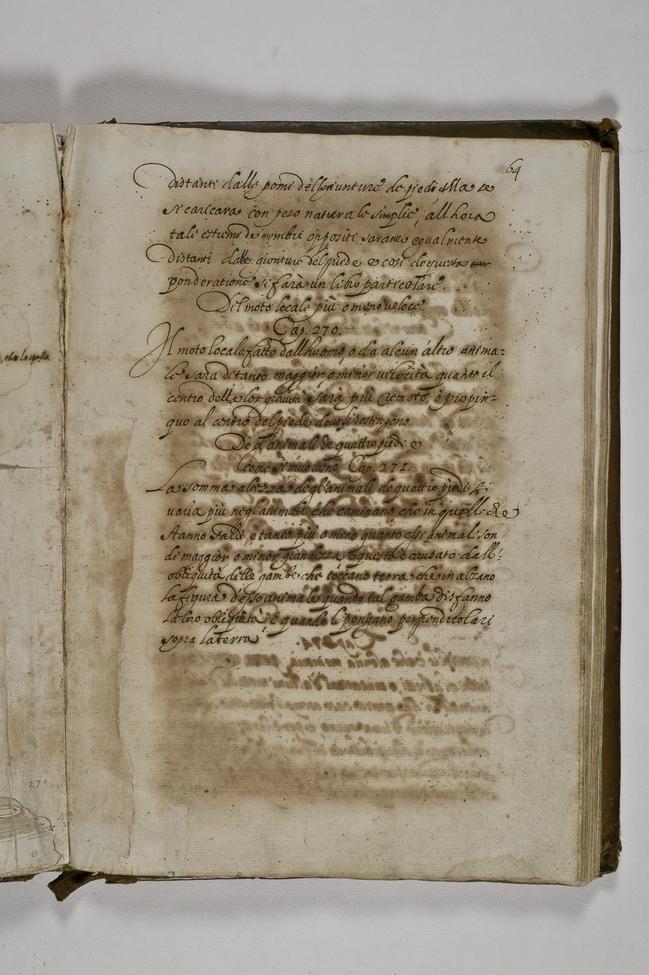 64
distanti dalli pomi dell giunture de piedi Ma se
si caricara con peso naturale simplice, all'hora
tali estremi de membri oppositi saranno egualmente
Distanti dalle gionture del piede e cosi di questa
ponderatione si farà un libro particolare.
Del moto locale più o meno veloce.
Cap. 270.
Il moto locale fatto dall'huomo, o da alcun'altro anima:
le sarà di tanto maggior o minor velocità quanto il
centro della lor gravità sarà più remoto o propin-
quo al centro del piede dove si sostengono
De gl'animali de quattro piedi e
come si muoveno. Cap. 271.
La somma altezza degl'animali de quattro piedi si
varia più negl'animali che caminano che in quelli che
stanno saldi e tanto più o meno quanto essi animali son
di maggior o minor grandezza e questo è causato dall'
obliquità delle gambe che toccano terra che inalzano
la figura d'esso animale quando tal gamba disfanno
la loro obliquità, e quando si pongano perpendicolari
sopra la terra
che la spalla
271